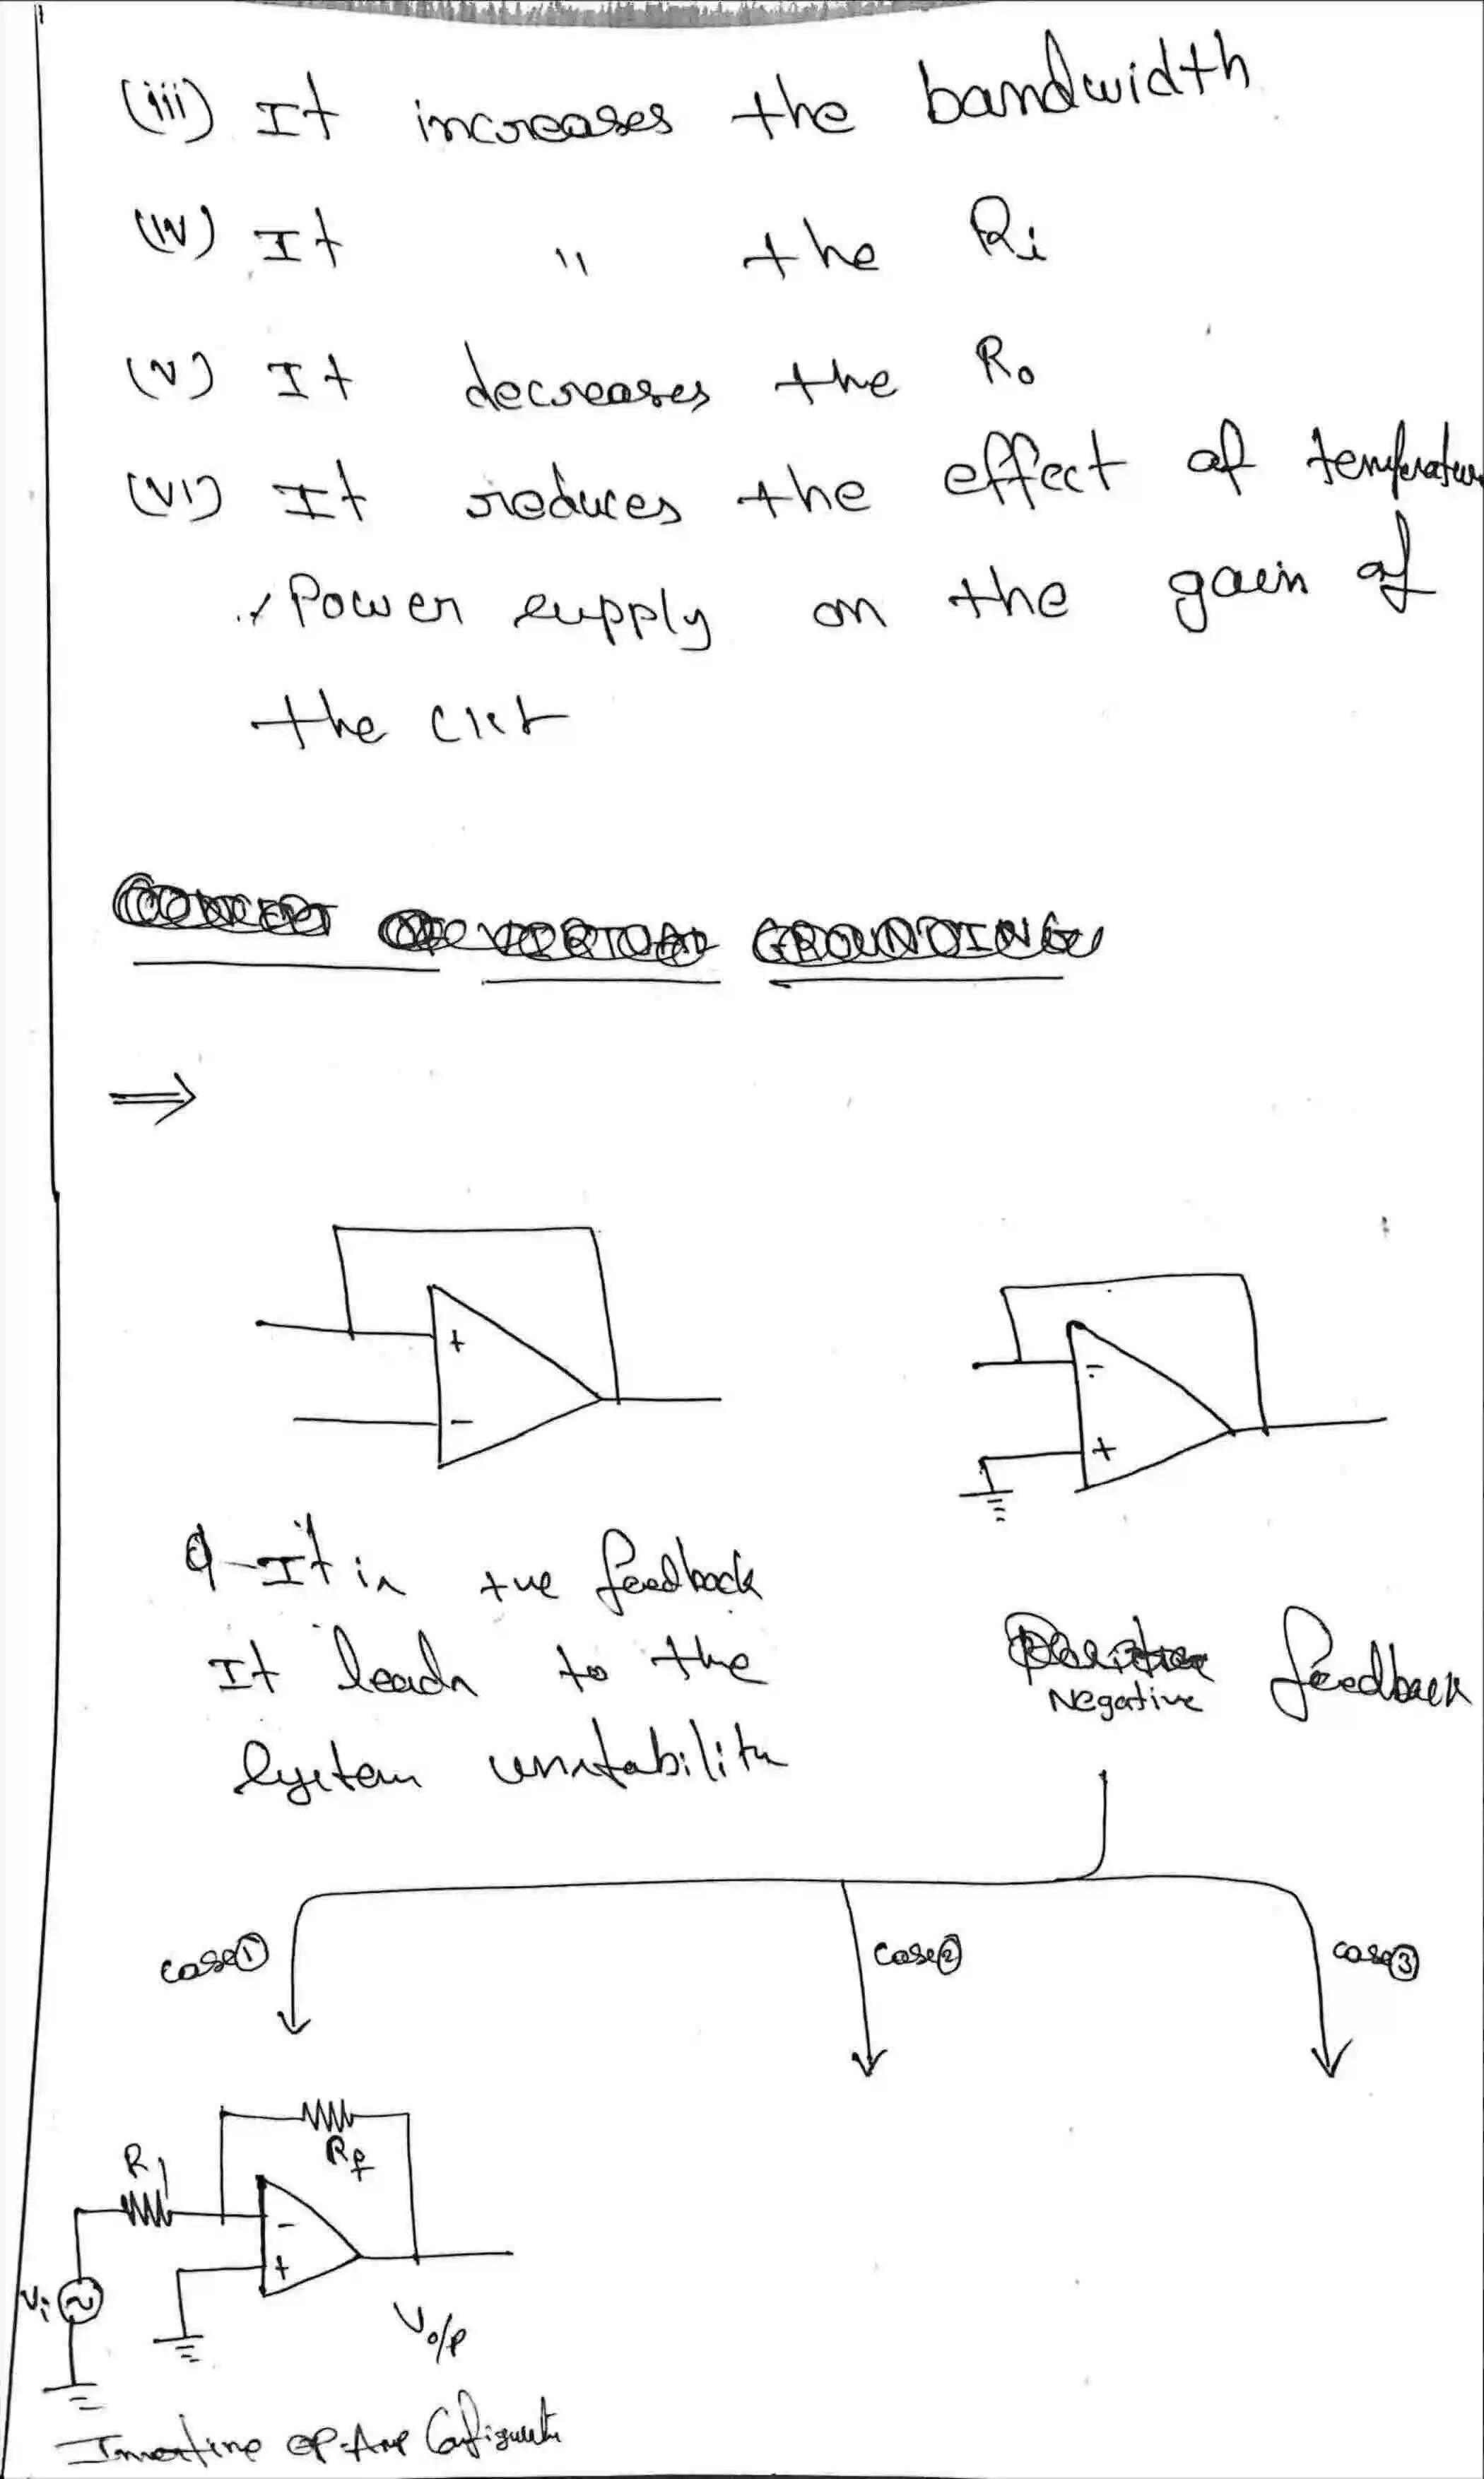 (iii) It increases the bandwidth
(iv) It " the Ri
(v) It decreases the Ro
(vi) It reduces the effect of temperature
, Power supply on the gain of
the ckt
CONCEPT OF VIRTUAL GROUNDING
⇒
+
-
-
+
It is +ve feedback
It leads to the
System unstability
Negative feedback
case ① case ② case ③
Rf
R1
-
+
Vi
Vo/p
Inverting OP-Amp Configuratn